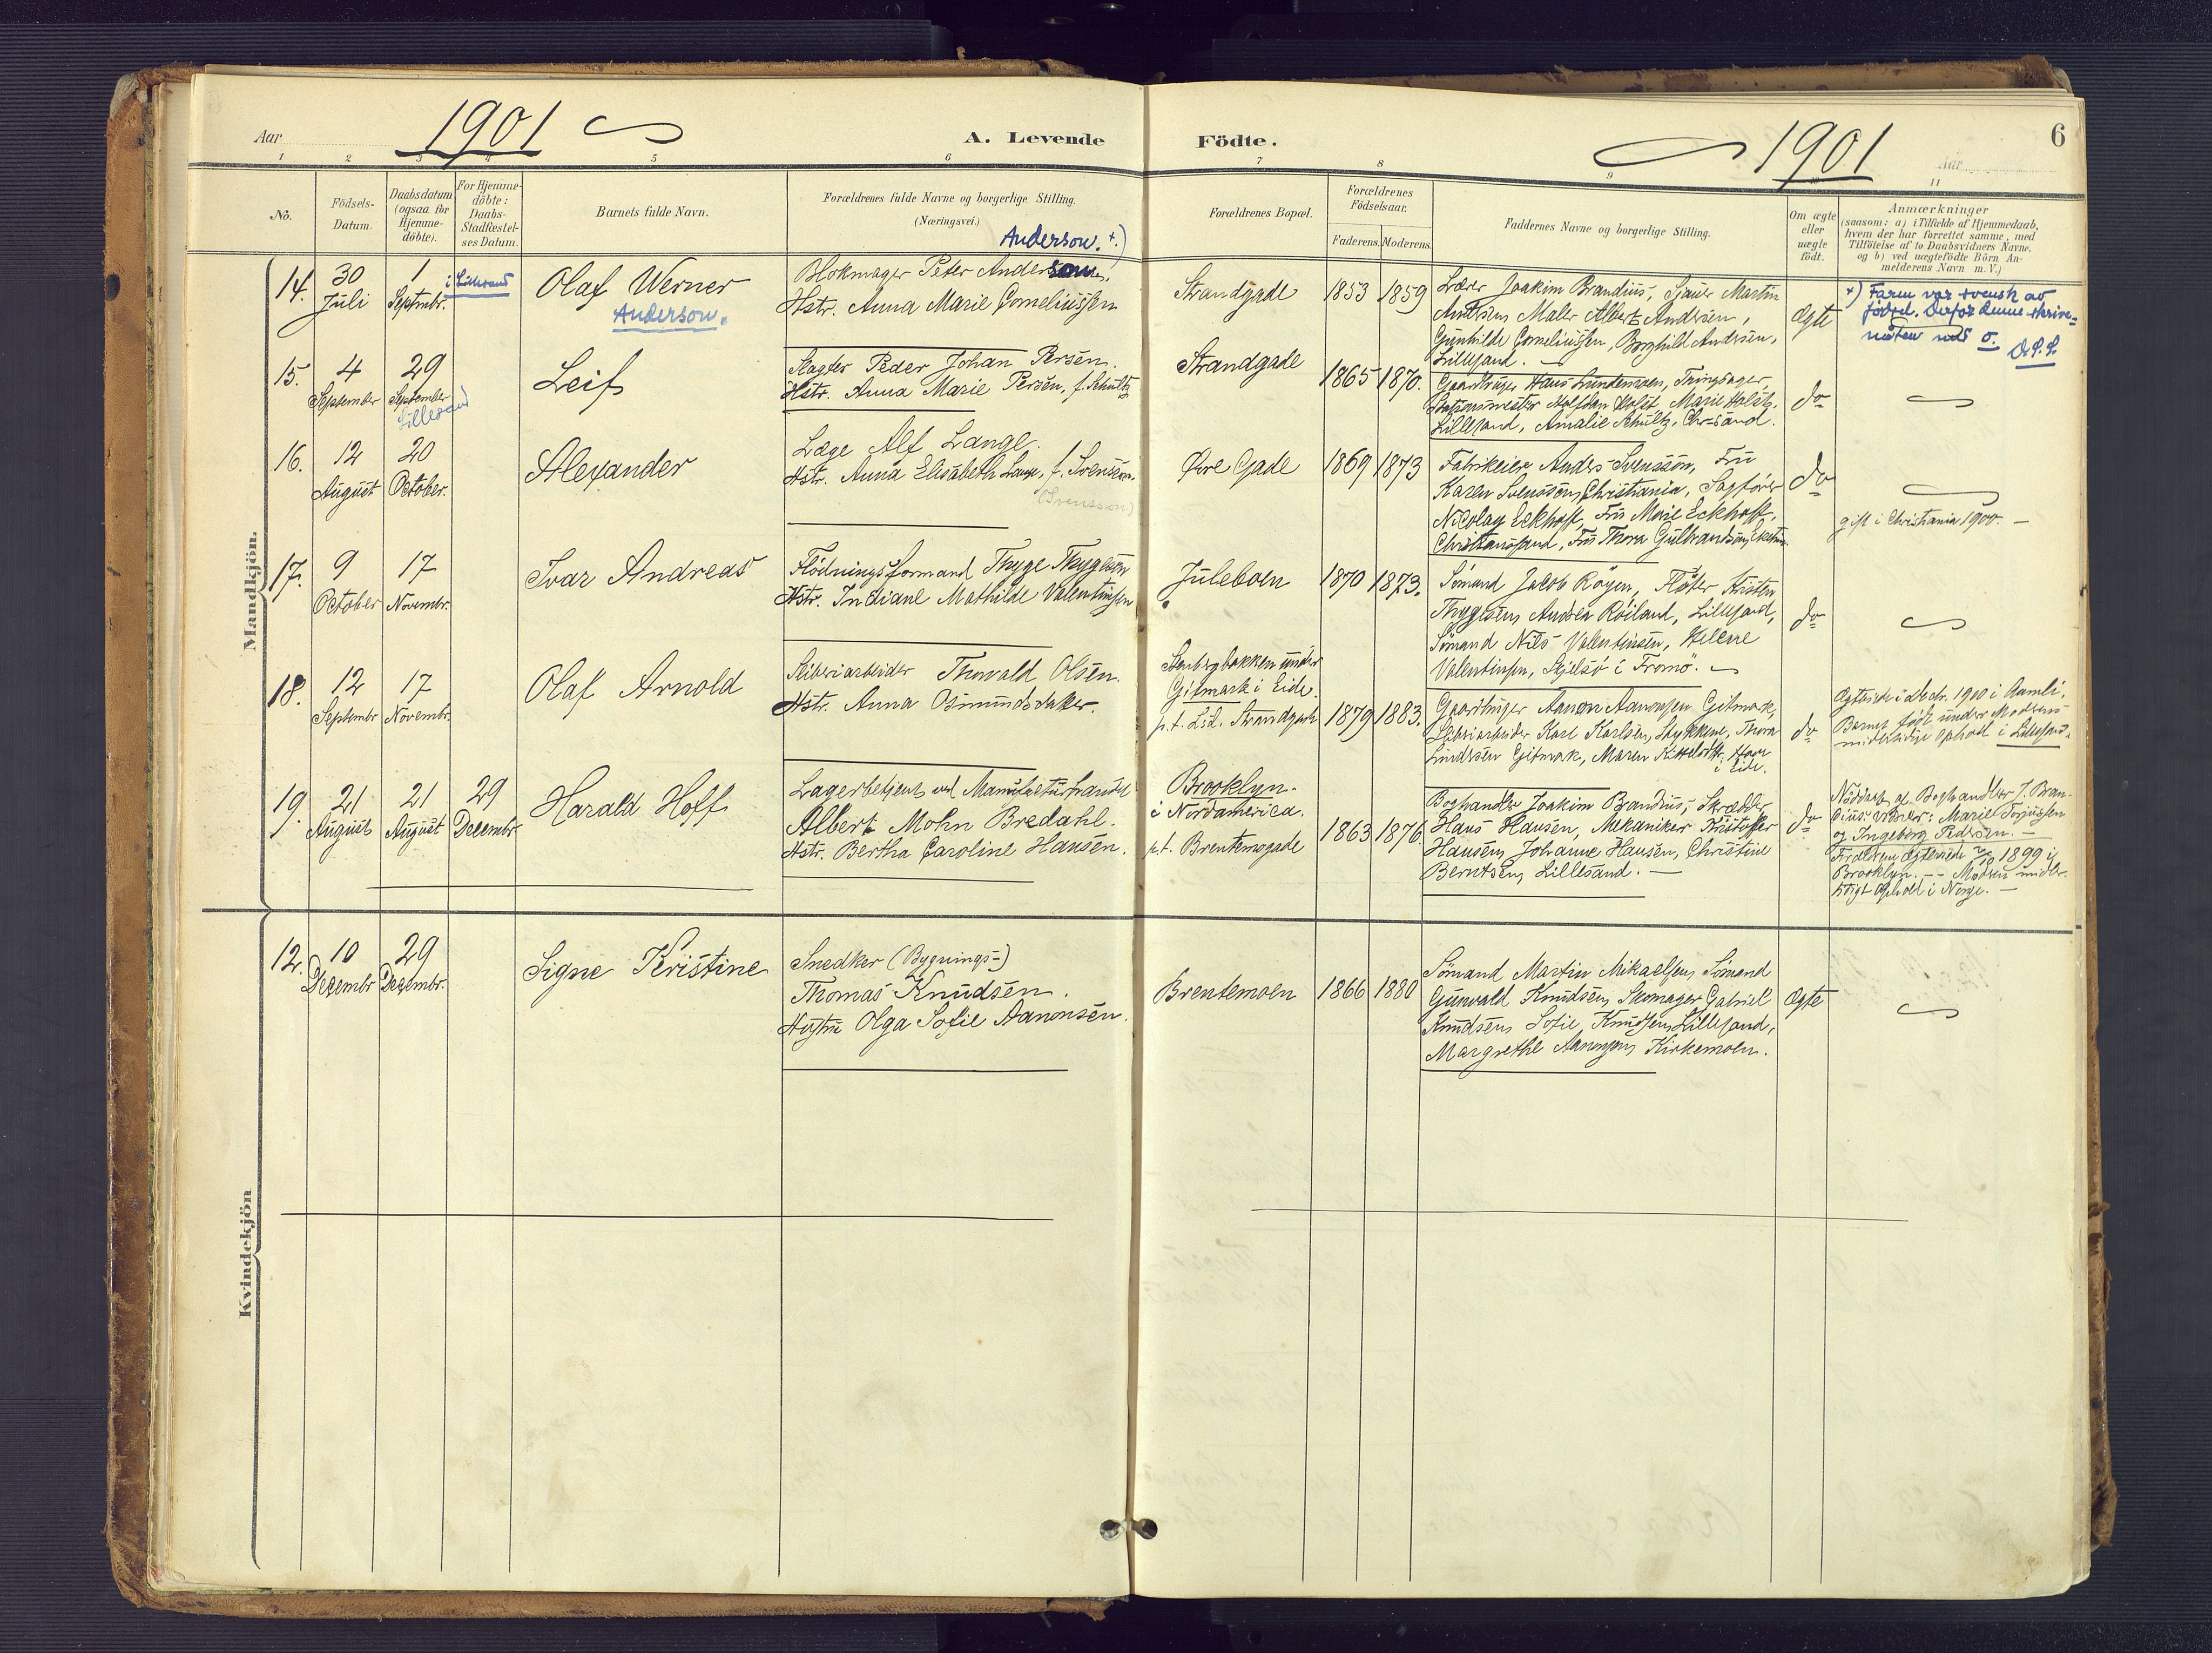 Aar 1901
A. Levende Födte.
1901 Aar
6
1 2 3 4 5 6 7 8 9 10 11
No.
Födsels-
Datum.
Daabsdatum
(ogsaa for
Hjemme-
döbte).
For Hjemme-
döbte:
Daabs-
Stadfæstel-
ses Datum.
Barnets fulde Navn.
Forældrenes fulde Navne og borgerlige Stilling.
(Næringsvei.)
Forældrenes Bopæl.
Forældrenes
Födselsaar.
Faderens. Moderens.
Faddernes Navne og borgerlige Stilling.
Om ægte
eller
uægte
födt.
Anmærkninger
(saasom: a) i Tilfælde af Hjemmedaab,
hvem der har forrettet samme, med
Tilföielse af to Daabsvidners Navne,
og b) ved uægtefödte Börn An-
melderens Navn m. V.)
Mandkjön.
14.
30
Juli
1
Septmbr.
i Lillesand
Olaf Werner
Anderson.
Anderson. +)
Blokmager Peter Anderson,
Hstr. Anna Marie Corneliussen
Strandgade
1853 1859
Lærer Joakim Brandius, Sjauer Martin
Andersen Maler Albert Andersen,
Gunhilde Corneliussen, Borghild Andersen,
Lillesand.
Ægte
+) Faren var svensk av
fødsel. Derfor denne skrive-
måten med o.
15.
4
September
29
September
Lillesand
Leif
Slagter Peder Johan Persen.
Hstr. Anna Marie Persen, f. Schultz
Strandgade
1865 1870.
Gaardbruger Hans Lundemoen, Tingsager,
Stationsmester Halfdan Holst Marie Holst,
Lillesand, Amalie Schultz, Chr-sand.
do
16.
12
August
20
October.
Alexander
Læge Alf Lange.
Hstr. Anna Elisabeth Lange, f. Svenssen.
(Svensson)
Øvre Gade
1869 1873
Fabrikeier Anders Svensson, Fru
Karen Svensson, Christiania, Sagfører
Nicolay Eckhoff, Fru Marie Eckhoff,
Christianssand, Fru Thora Gulbrandsen,
do
gift i Christiania 1900. –
17.
9
October
17
Novembr.
Ivar Andreas
Flødningsformand Thyge Thygesen
Hstr. Indiane Mathilde Valentinsen
Juleboen
1870 1873.
Sømand Jacob Røyen, Fløter Kristen
Thygesen Andrea Røiland, Lillesand,
Sømand Nils Valentinsen, Helene
Valentinsen, Skjelsø i Tromø.
do
18.
12
Septembr
17
Novembr.
Olaf Arnold
Sliberiarbeider Thorvald Olsen.
Hstr. Anna Osmundsdatter.
Stenbergbakken under
Gitmark i Eide.
p.t. Lsd. Strandgade
1879 1883.
Gaardbruger Aanon Aanonsen Gitmark,
Sliberiarbeider Karl Karlsen, Stykkene, Thora
Lindresen Gitmark, Maren Kittelsdtr. Have
i Eide.
do
Ægteviede i Decbr. 1900 i Aamli.
Barnet født under Moderens
midlertidige Ophold i Lillesand.
19.
21
August
21
August
29
Decembr.
Harald Hoff
Lagerbetjent ved Manufakturhandel
Albert Mohn Bredahl.
Hstr. Bertha Caroline Hansen.
Brooklyn.
i Nordamerika.
p.t. Brentemogade
1863 1876
Boghandler Joakim Brandius, Skrædder
Hans Hansen, Mekaniker Kristoffer
Hansen, Johanne Hansen, Christine
Berntsen, Lillesand. –
do
Nøddøbt af Boghandler J. Bran-
dius. Vidner: Marie Torjussen
og Ingeborg Pedersen. –
Forældrene Ægteviede 1899 i
Brooklyn. – Modren midler-
tidigt Ophold i Norge. –
Kvindekjön
12.
10
Decembr
29
Decembr.
Signe Kristine
Snedker (Bygnings-)
Thomas Knudsen.
Hustru Olga Sofie Aanonsen.
Brentemoen
1866 1880
Sømand Martin Mikaelsen, Sømand
Gunvald Knudsen, Skomager Gabriel
Knudsen, Sofie Knudsen, Lillesand,
Margrethe Aanonsen, Kirkemoen.
Ægte